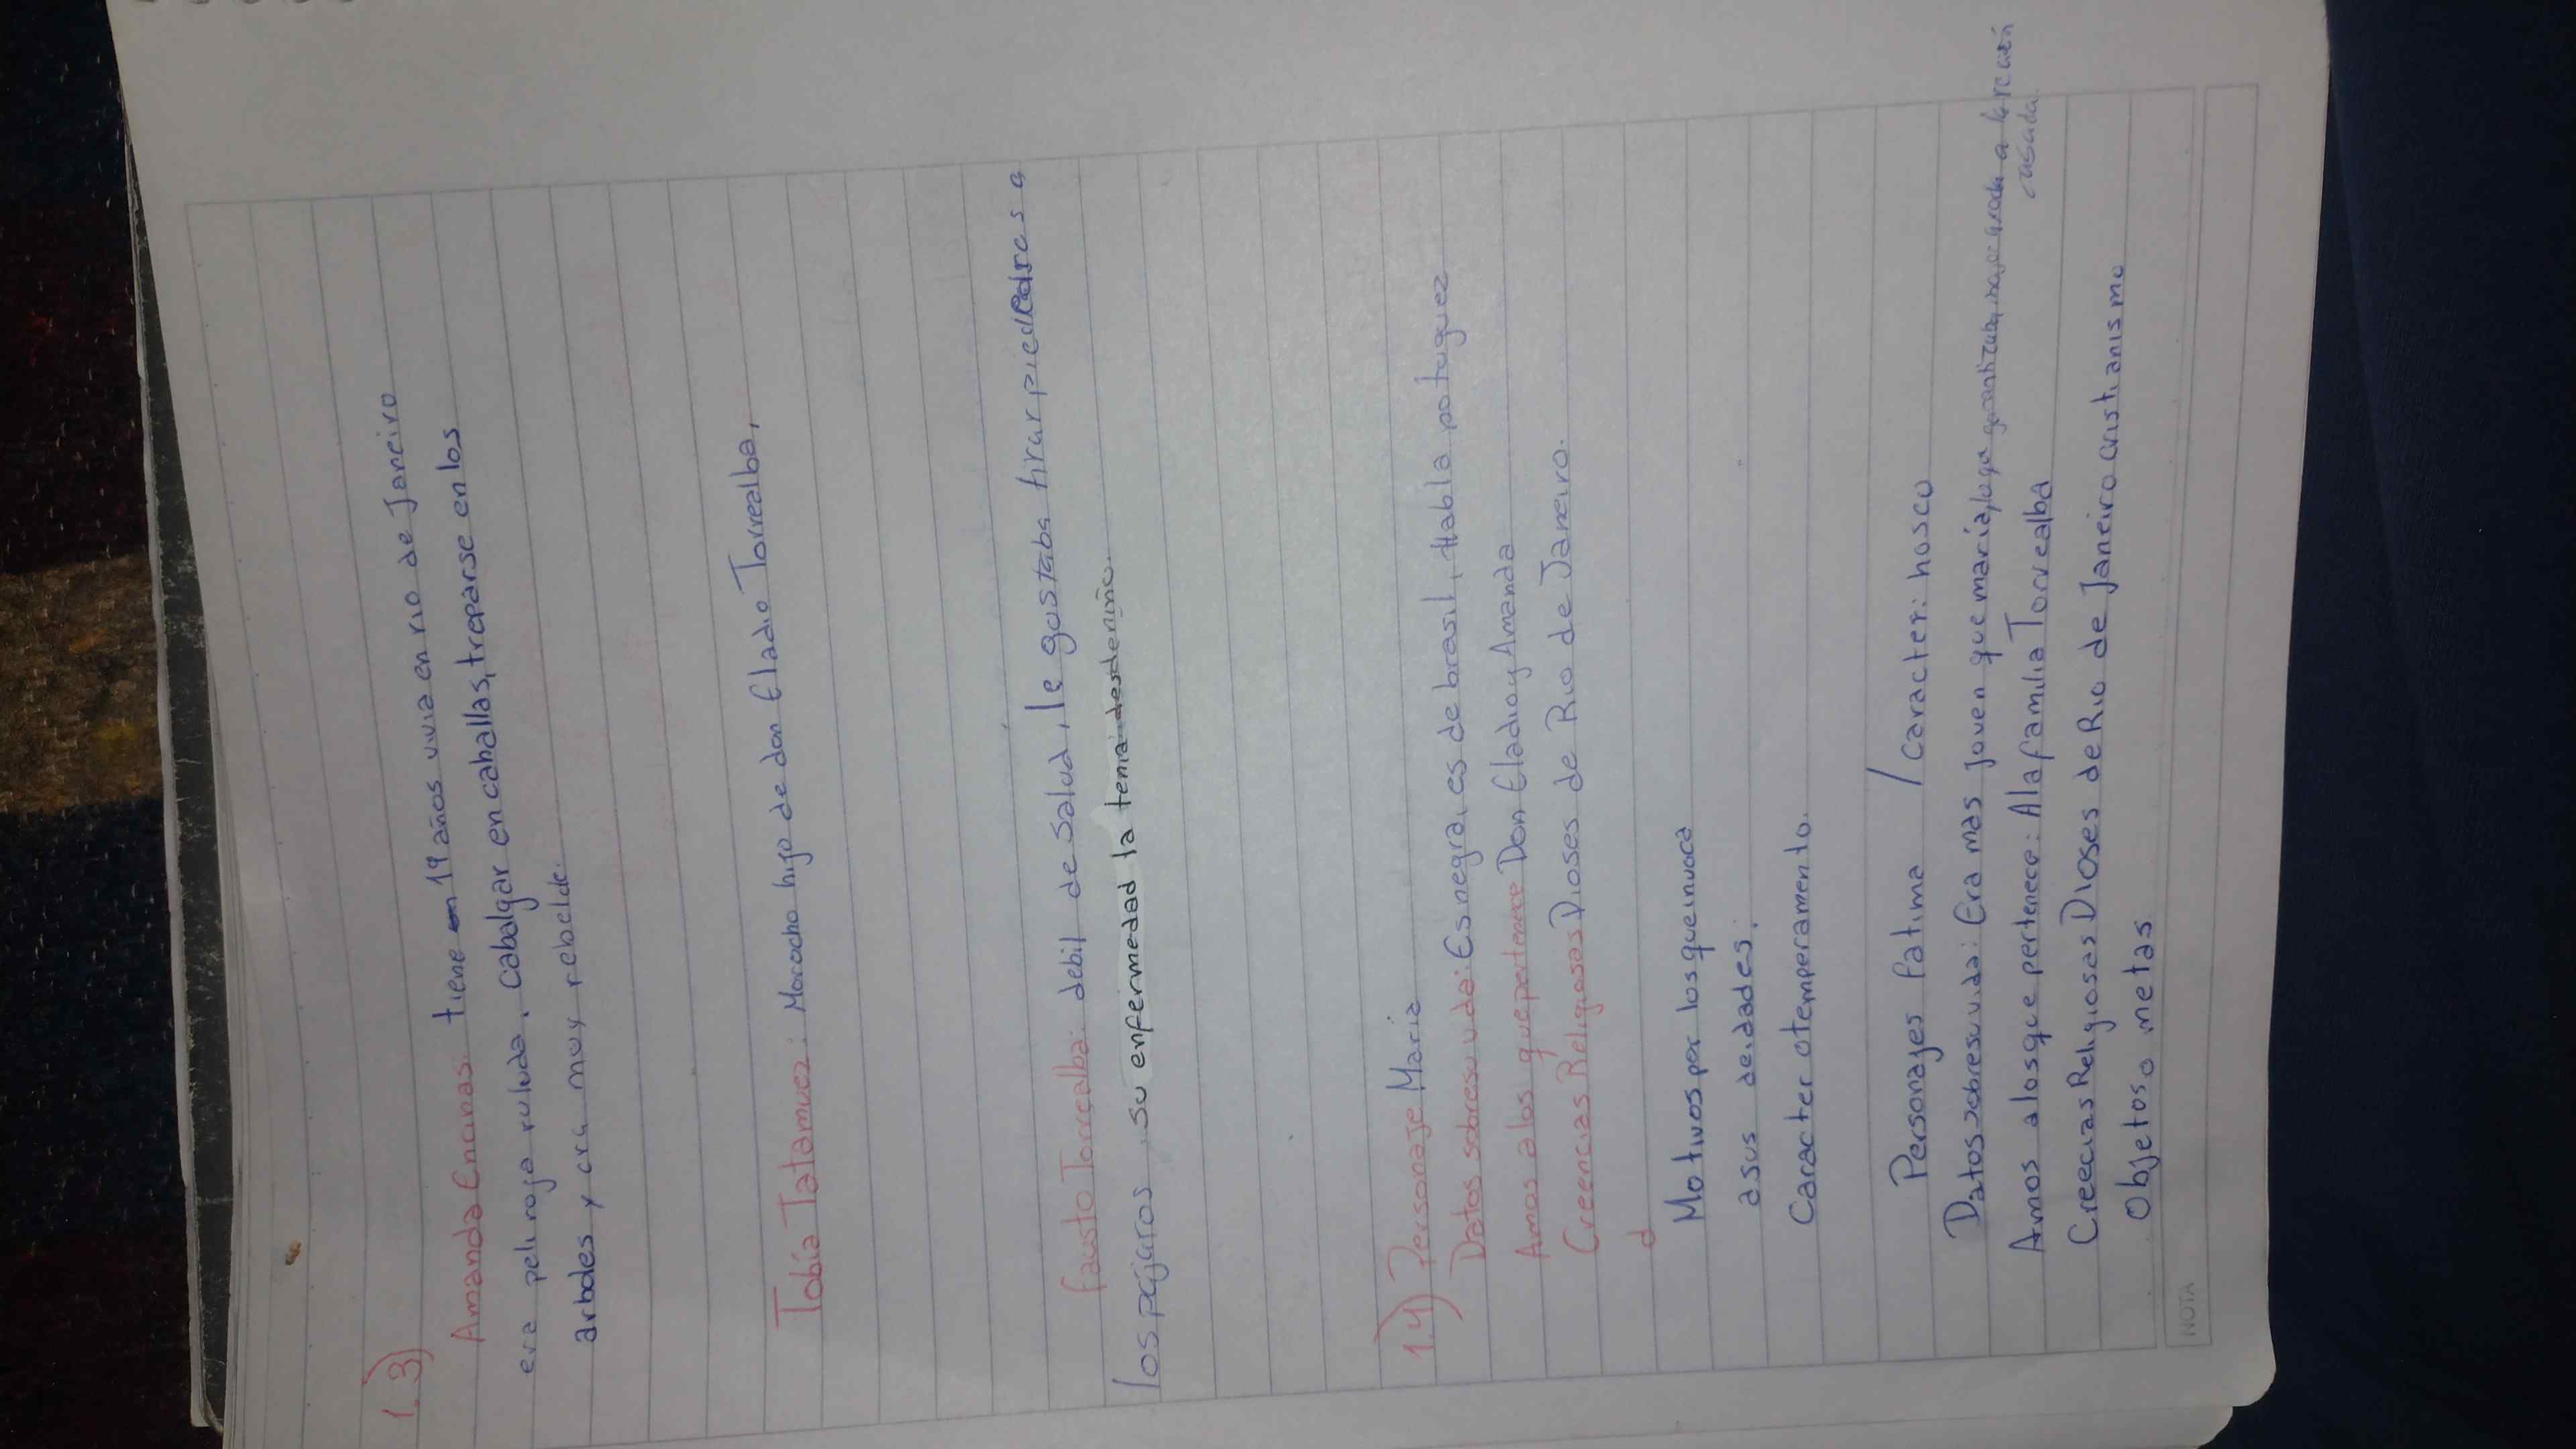 1.3)
Amanda Encinas: tiene en 19 años vivia en rio de Janeiro
era peli roja ruluda, cabalgar en caballas, treparse en los
arboles y era muy rebelde.
Tobía Tatamuez: Morocho hijo de don Eladio Torrealba,
fausto Torrealba: debil de salud, le gustaba tirar piedras a
los pájaros, su enfermedad la tenia desde niño.
1.4) Personaje Maria
Datos sobre su vida: Es negra, es de brasil, Habla potuguez
Amos a los que pertenece Don Eladio y Amanda
Creencias Religiosas Dioses de Rio de Janeiro.
d
Motivos por los que invoca
a sus deidades:
Caracter o temperamento.
Personajes Fatima / Caracter: hosco
Datos sobre su vida: Era mas joven que maria, a la recien
casada
Amos a los que pertenece: A la familia Torrealba
Creecias Religiosas Dioses de Rio de Janeiro cristianismo
Objetos o metas
NOTA